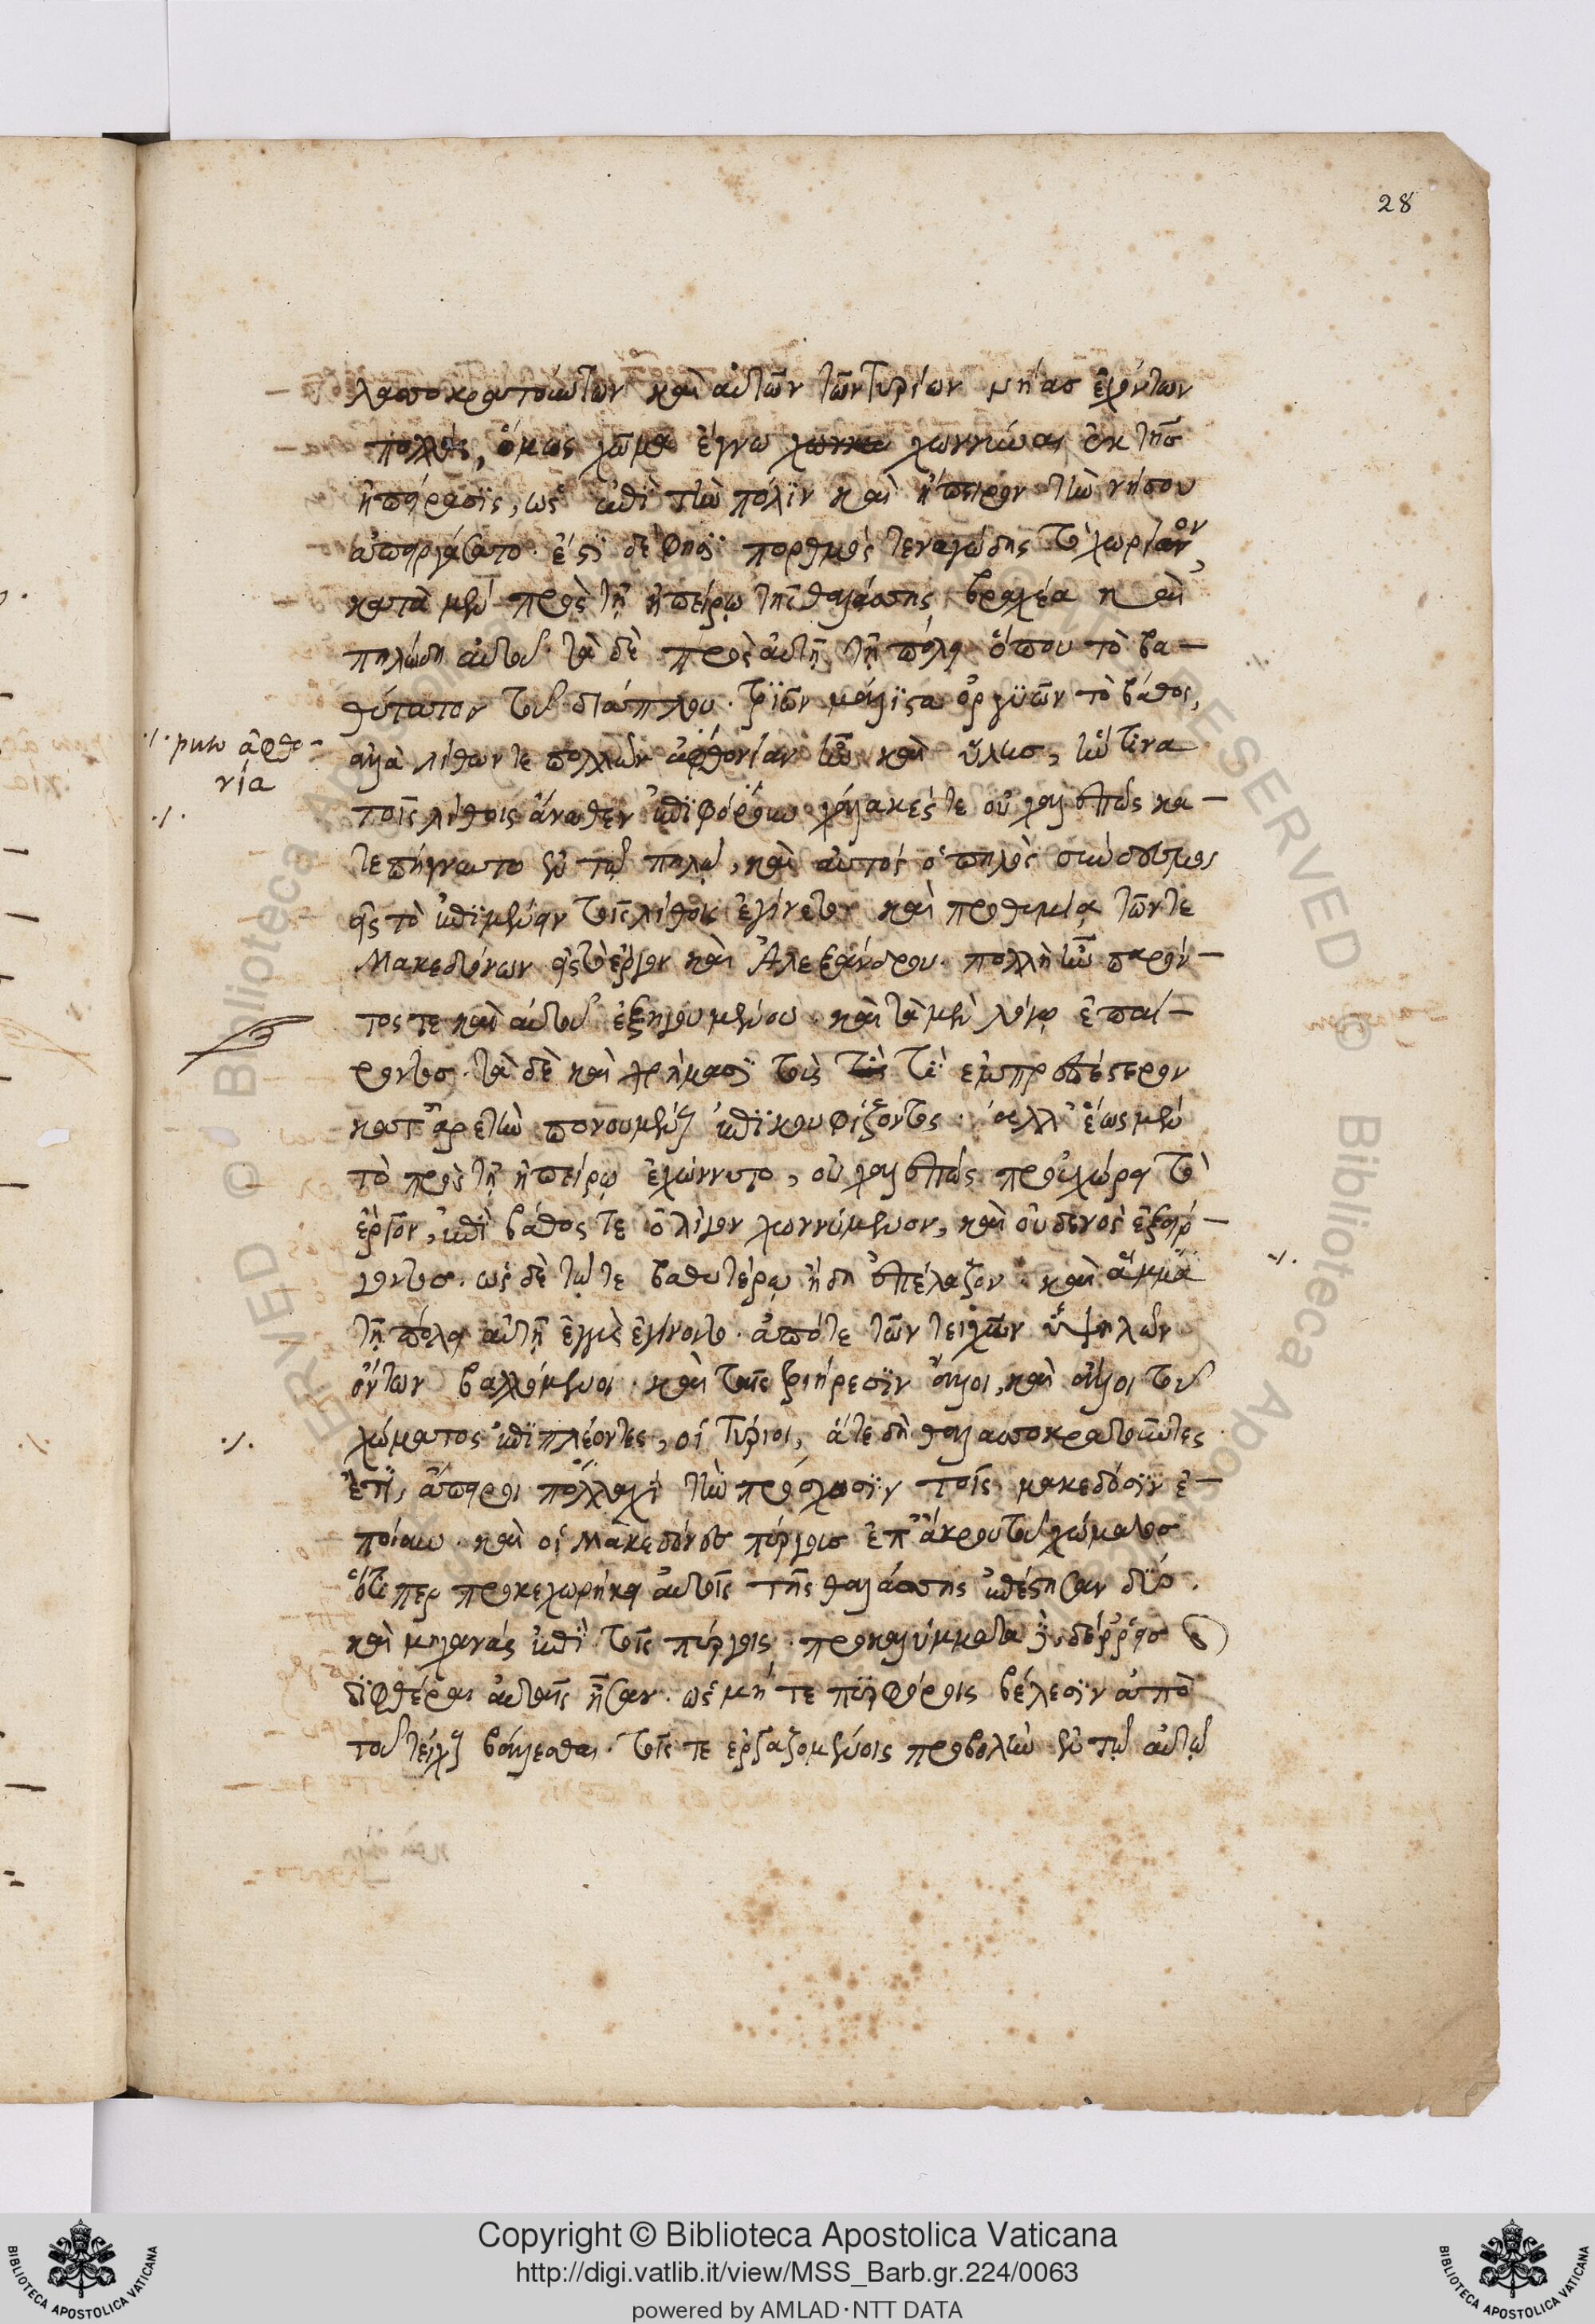 28
λασσοκρατούντων καὶ αὐτῶν τῶν Τυρίων νῆας ἐχόντων
πολλάς, ὅμως χῶμα ἔγνω χωννύναι ἐκ τῆς
ἠπείρου, ὡς ἐπὶ τὴν πόλϊν καὶ ἤπειρον τὴν νῆσον
ἀπειργάσατο. ἔστι δὲ πορθμὸς τεναγώδης τὸ χωρίον
κατὰ μὲν πρὸς τῇ ἠπείρῳ τῆς θαλάσσης βραχέα καὶ
πηλώδη αὐτοῦ. τὰ δὲ πρὸς αὐτῇ τῇ πόλει ὅπου τὸ βα-
θύτατον τοῦ διάπλου. τριῶν μάλϊστα ὀργϋιῶν τὸ βάθος,
ἀλλὰ λίθων τε πολλῶν ἀφθονίαν ἦν καὶ ὕλης, ἥντινα
·/· ρυιῶ ἀφθο-
νία
τοῖς λίθοις ἄνωθεν ἐπϊφόρουν χάλακές τε οὐ χαλεπῶς κα-
·/·
τεπήγνυντο ἐν τῷ πηλῷ, καὶ αὐτὸς ὁ πηλὸς σύνδεσμος
εἰς τὸ ἐπϊμένειν τοῖς λίθοις ἐγίνετο. καὶ προθυμία τῶν τε
Μακεδόνων εἰς τὸ ἔργον καὶ Ἀλεξάνδρου. πολλὴ ἦν παρόν-
τος τε καὶ αὐτοῦ ἐξηγουμένου. καὶ τὰ μὲν λόγῳ ἐπαί-
ροντος. τὰ δὲ καὶ χρήμασϊ τοὺς τι ἐμπρεπέστερον
κατ' ἀρετὴν πονουμένους ἐπϊκουφίζοντος. ἀλλ' ἕως μὲν
τὸ πρὸς τῇ ἠπείρῳ ἐχώννυτο, οὐ χαλεπῶς προὐχώρει τὸ
ἔργον, ἐπὶ βάθος τε ὀλίγον χωννύμενον, καὶ οὐδενὸς ἐξείρ-
γοντος. ὡς δὲ τῷ τε βαθυτέρῳ ἤδη ἐπέλαζον. καὶ ἅμμα
·/·
τῇ πόλει αὐτῇ ἐγγὺς ἐγίνοντο. ἀπό τε τῶν τειχῶν ὑψηλῶν
ὄντων βαλλόμενοι. καὶ ταῖς τριήρεσϊν ἄλλοι, καὶ ἄλλοι τοῦ
χώματος ἐπϊπλέοντες, οἱ Τύριοι, ἅτε δὴ θαλασσοκρατοῦντες
·/·
ἔτι, ἄπορον πολλαχῇ τὴν πρόσχωσϊν τοῖς μακεδόσϊν ἐ-
ποίουν. καὶ οἱ Μακεδόνες πύργους ἐπ' ἄκρου τοῦ χώματος
ὅτι περ προκεχωρήκει αὐτοῖς τῆς θαλάσσης ἐπέστησαν δύο.
καὶ μηχανὰς ἐπὶ τοῖς πύργοις. προκαλύμματα δὲ δέρρεις
διφθέραι αὐταῖς ἦσαν. ὡς μή τε πϋρφόροις βέλεσϊν ἀπὸ
τοῦ τείχους βάλλεσθαι. τοῖς τε ἐργαζομένοις προβολὴν ἐν τῷ αὐτῷ
Copyright © Biblioteca Apostolica Vaticana
http://digi.vatlib.it/view/MSS_Barb.gr.224/0063
powered by AMLAD·NTT DATA